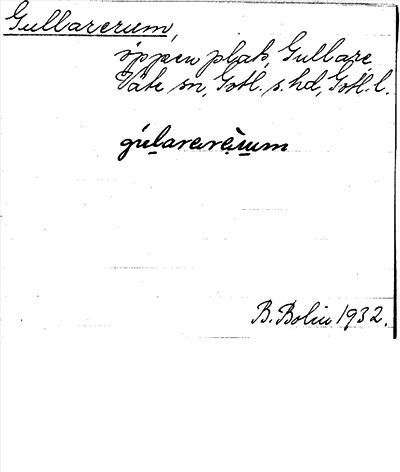 Gullarerum,
öppen plats, Gullare,
Väte sn, Gotl. s. hd, Gotl. l.
gúlararàrum
B. Bolin 1932.